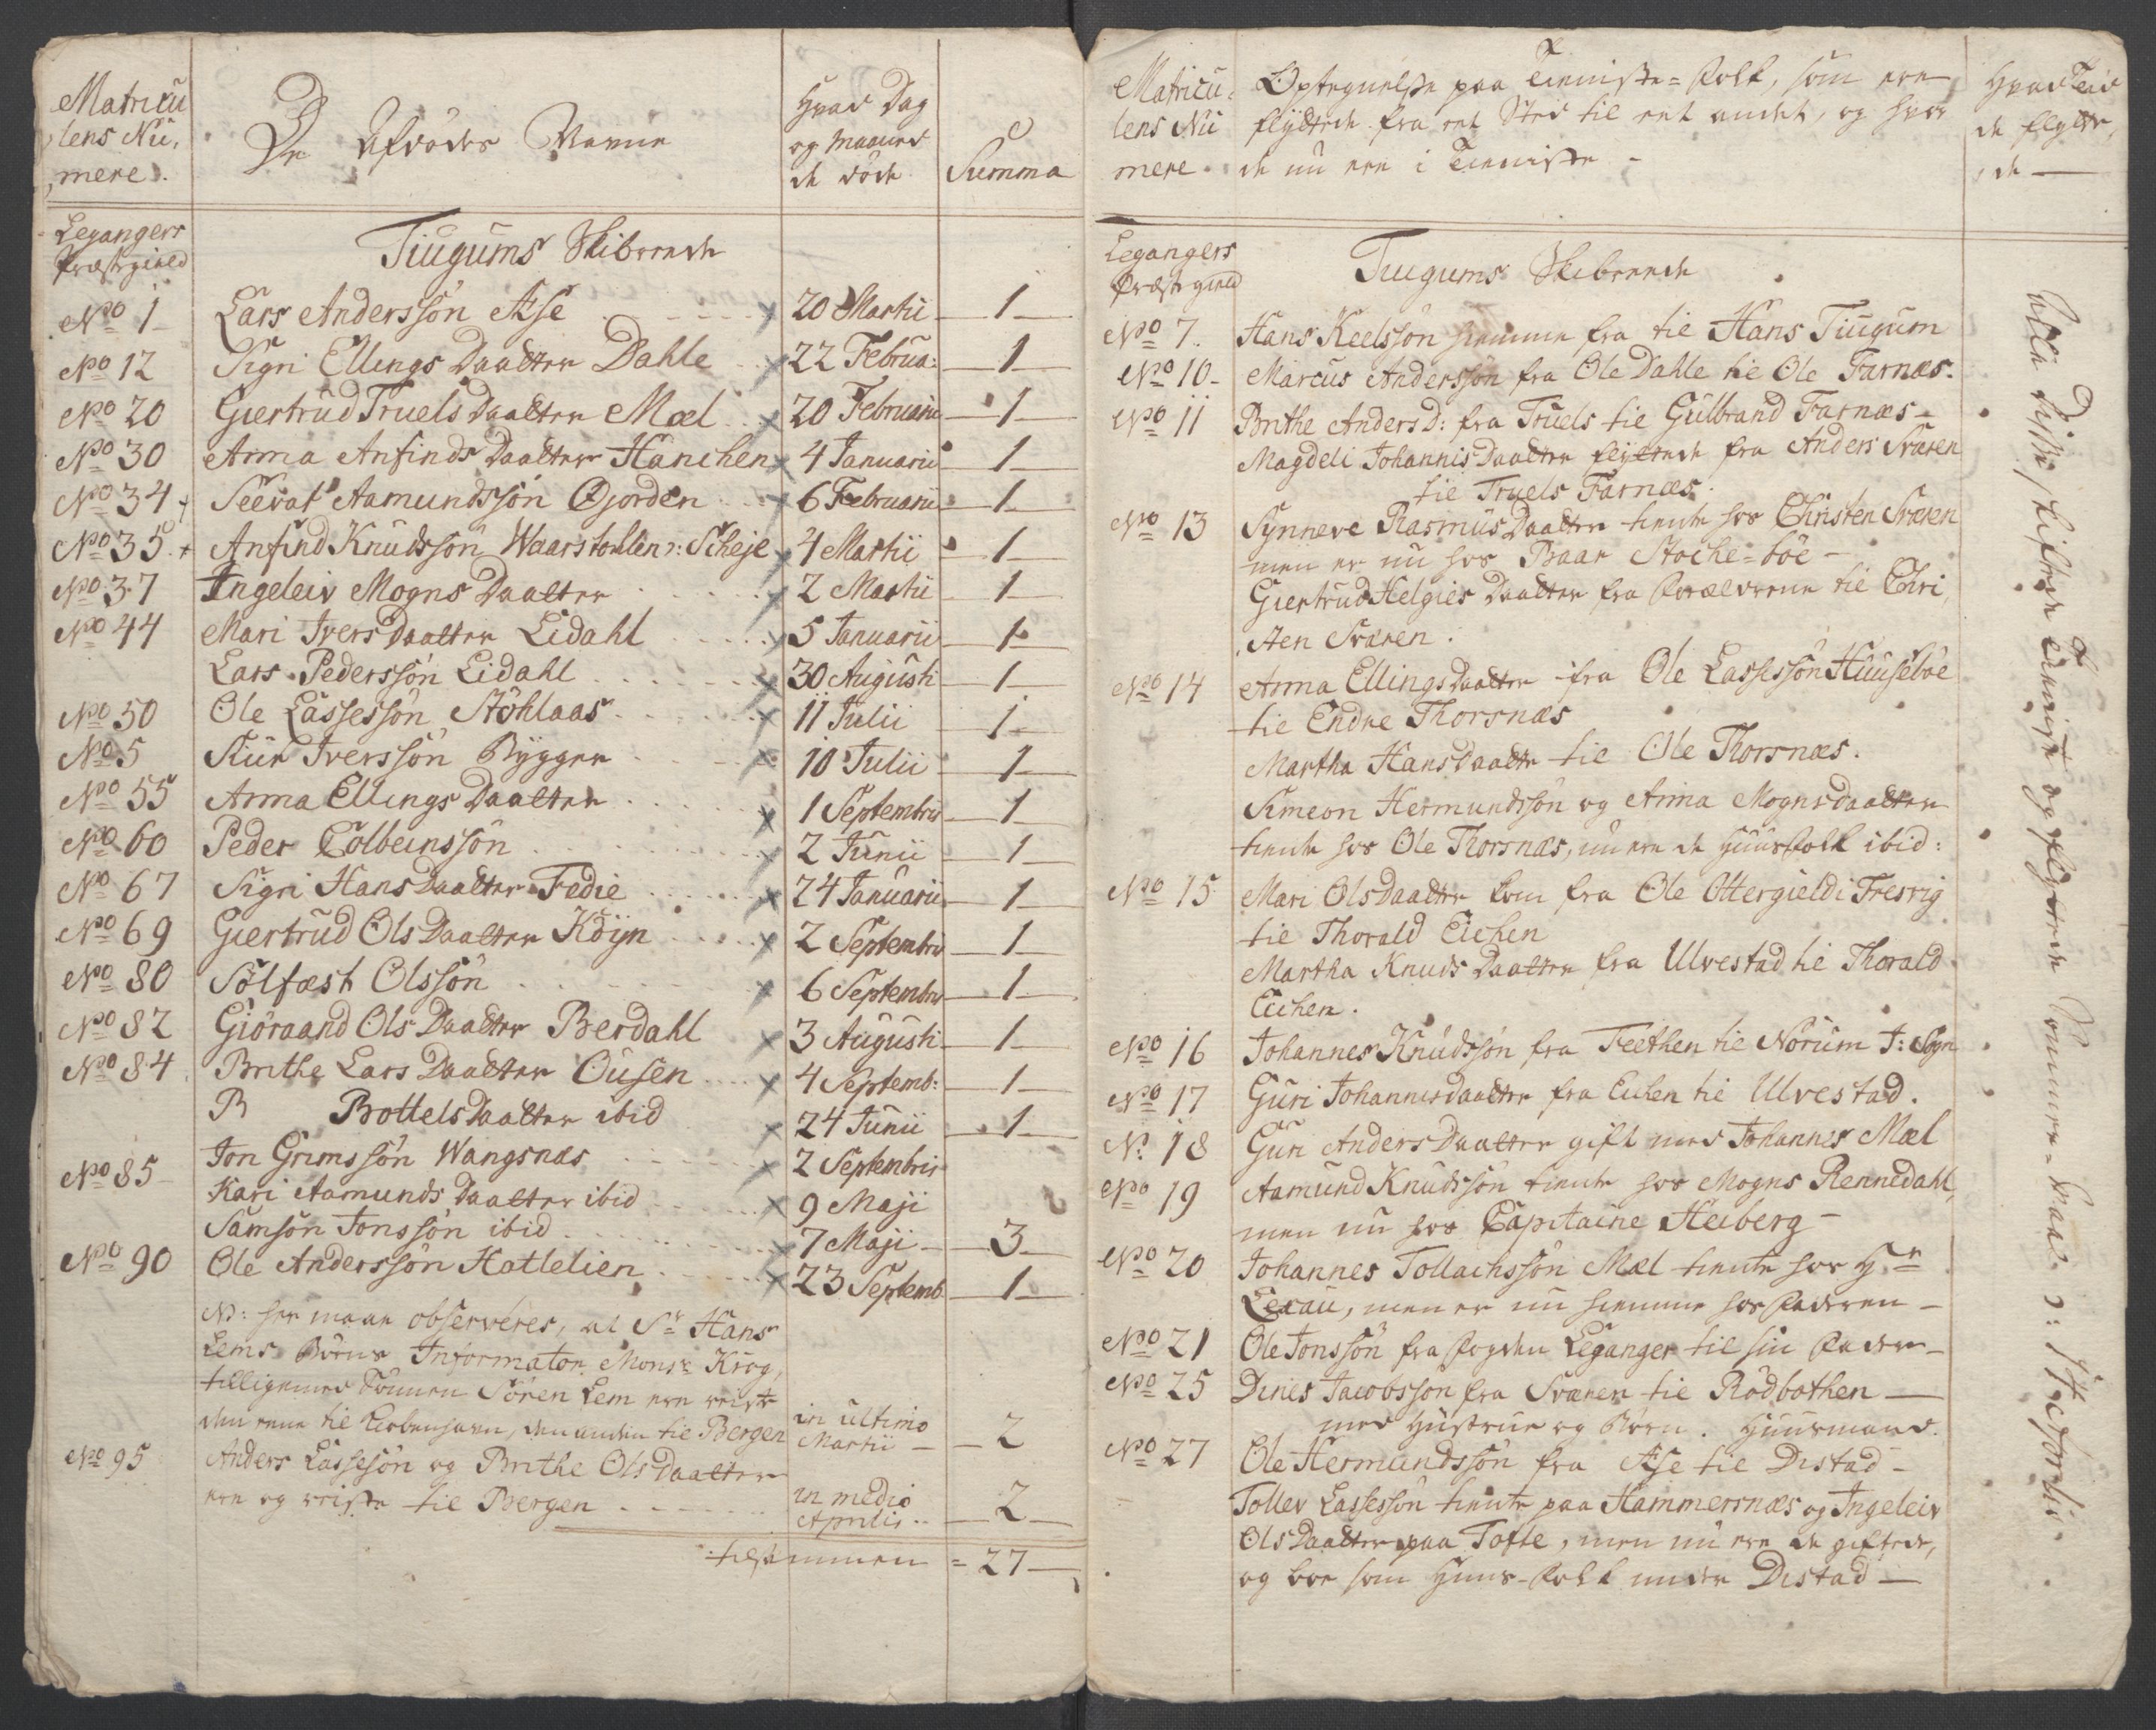 Matricu
lens Nu,
mere.
De Afdødes Navne
Hvad Dag
og Maaned
de døde
Summa
Legangers
Præstegield
Tiugums Skibrende
No 1 Lars Anderssön Æse 20 Martii 1
No 12 Sigri Ellings Daatter Dahle 22 Februa: 1
No 20 Giertrud Truels Daatter Mæl 20 Februarii 1
No 30 Anna Anfinds Daatter Hanchen 4 Januarii 1
No 34 Seevat Aamundssön Gjorden 6 Februarii 1
No 35 Anfind Knudssön Waarstohlen ɔ: Scheje 4 Martii 1
No 37 Ingeleiv Mogns Daatter 2 Martii 1
No 44 Mari Ivers Daatter Eidahl 5 Januarii 1
Lars Pederssön Eidahl 30 Augusti 1
No 50 Ole Lassessön Stöhlaas 11 Julii 1
No 5 Siur Iverssön Bygger 10 Julii 1
No 55 Anna Ellings Daatter 1 Septembris 1
No 60 Peder Colbeinssön 2 Junii 1
No 67 Sigri Hans Daatter Fedie 24 Januarii 1
No 69 Giertrud Ols Daatter Köijn 2 Septembris 1
No 80 Sölfæst Olssön 6 Septembris 1
No 82 Giöraand Ols Daatter Berdahl 3 Augusti 1
No 84 Brithe Lars Daatter Ousen 4 Septemb: 1
B Bottels Daatter ibid 24 Junii 1
No 85 Jon Grimssön Wangsnæs 2 Septembris
Kari Aamunds Daatter ibid 9 Maji
Samson Jonssön ibid 7 Maji 3
No 90 Ole Anderssön Hatlelien 23 Septemb 1
N: her maae observeres, at Sr Hans
Lems Börns Informator Monsr Krog,
tilligemed Sönnen Sören Lem ere reiste
den eene til Kiöbenhavn, den anden til Bergen in ultimo Martii 2
No 95 Anders Lassesön og Brithe Ols Daatter
ere og reiste til Bergen in medio Aprilis 2
tilsammen = 27
Matricu:
lens Nu
mere
Optegnelse paa Tienniste-Folk, som ere
flyttede fra eet Sted til eet andet, og hvor
de nu ere i Tienniste
Hvad Tiid
de flytte,
de
Legangers
Præstegield
Tiugums Skibrende
No 7. Hans Keelssön hiemme fra til Hans Tiugum
No 10 Marcus Anderssön fra Ole Dahle til Ole Farnæs.
No 11 Brithe Anders D: fra Truels til Gulbrand Farnæs
Magdeli Johannis Daatter flyttede fra Anders Sværen
til Truels Farnæs.
No 13 Synneve Rasmus Daatter tiente hos Christen Sværen
men er nu hos Baar Stoche-böe
Giertrud Helgies Daatter fra Forældrene til Chri,
sten Sværen.
No 14 Anna Ellings Daatter fra Ole Lassessön Huuseböe
til Endre Thorsnæs
Martha Hans Daatter til Ole Thorsnæs.
Simeon Hermundssön og Anna Mogns daatter
tiente hos Ole Thorsnæs, nu ere de Huusfolk ibid:
No 15 Mari Ols Daatter kom fra Ole Ottergield i Fresvig
til Thorald Eichen
Martha Knuds Daatter fra Ulvestad til Thorald
Eichen.
No 16 Johannes Knudssön fra Feethen til Norum J: Sogn
No 17 Guri Johannis daatter fra Eichen til Ulvestad.
N: 18 Guri Anders Daatter gift med Johannes Mæl
No 19 Aamund Knudssön tiente hos Mogns Rennedahl,
men nu hos Capitaine Heiberg
No 20 Johannes Tollachssön Mæl tiente hos Hr
Lexau, men er nu hiemme hos Faderen
No 21 Ole Jonssön fra Fogden Leganger til sin Fader
No 25 Dines Jacobsson fra Sværen til Rödbothen
med Hustrue og Börn. Huusmand.
No 27 Ole Hermundssön fra Æse til Distad
Tollev Lassessön tiente paa Hammersnæs og Ingeleiv
Ols Daatter paa Tofte, men nu ere de giftede,
og boe som Huus-Folk under Distad
Alle disse skiftede Tienniste og flyttede Sommer-Dag ɔ: 14 Aprilis.